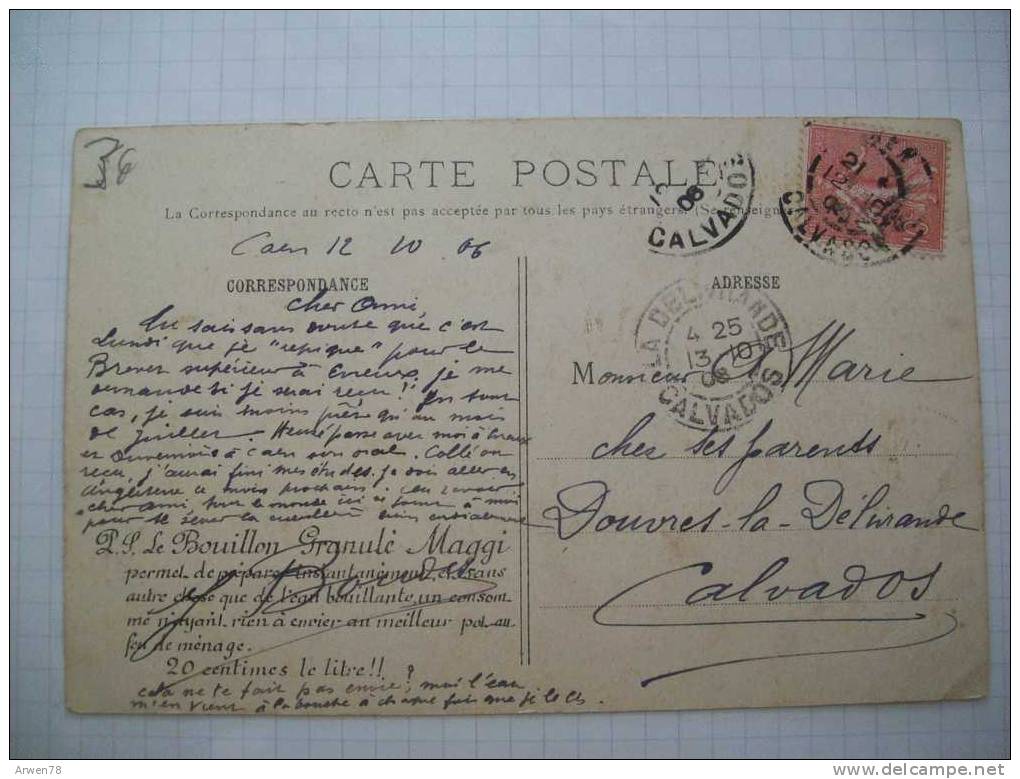 CARTE POSTALE
La Correspondance au recto n'est pas acceptée par tous les pays étrangers. (Se renseigne
Caen 12 10 06
CORRESPONDANCE
cher Ami,
Tu sais sans doute que c'est
Lundi que je "repique" pour le
Brevet supérieur à Evreux, je me
demande si je serai reçu! En tout
cas, je suis moins prêt qu'au mois
de Juillet. passe avec moi à
à Caen son oral. Collé ou
reçu, j'aurai fini mes études. Je vais aller en
Angleterre le mois prochain.
cher ami, tout le monde ici se joint à moi
pour te serrer la
P.S. Le Bouillon Granulé Maggi
permet de préparer instantanément, et sans
autre chose que de l'eau bouillante, un consom-
mé n'ayant rien à envier au meilleur pot-au-
feu de ménage.
20 centimes le litre!!
cela ne te fait pas envie? moi l'eau
m'en vient à la bouche à chaque fois que je le lis.
CALVADOS
08
CALVADOS
ADRESSE
LA DELIVRANDE
4 25
13 10
08
CALVADOS
Monsieur Marie
chez ses parents
Douvres-la-Délivrande
Calvados
Arwen78
www.delcampe.net